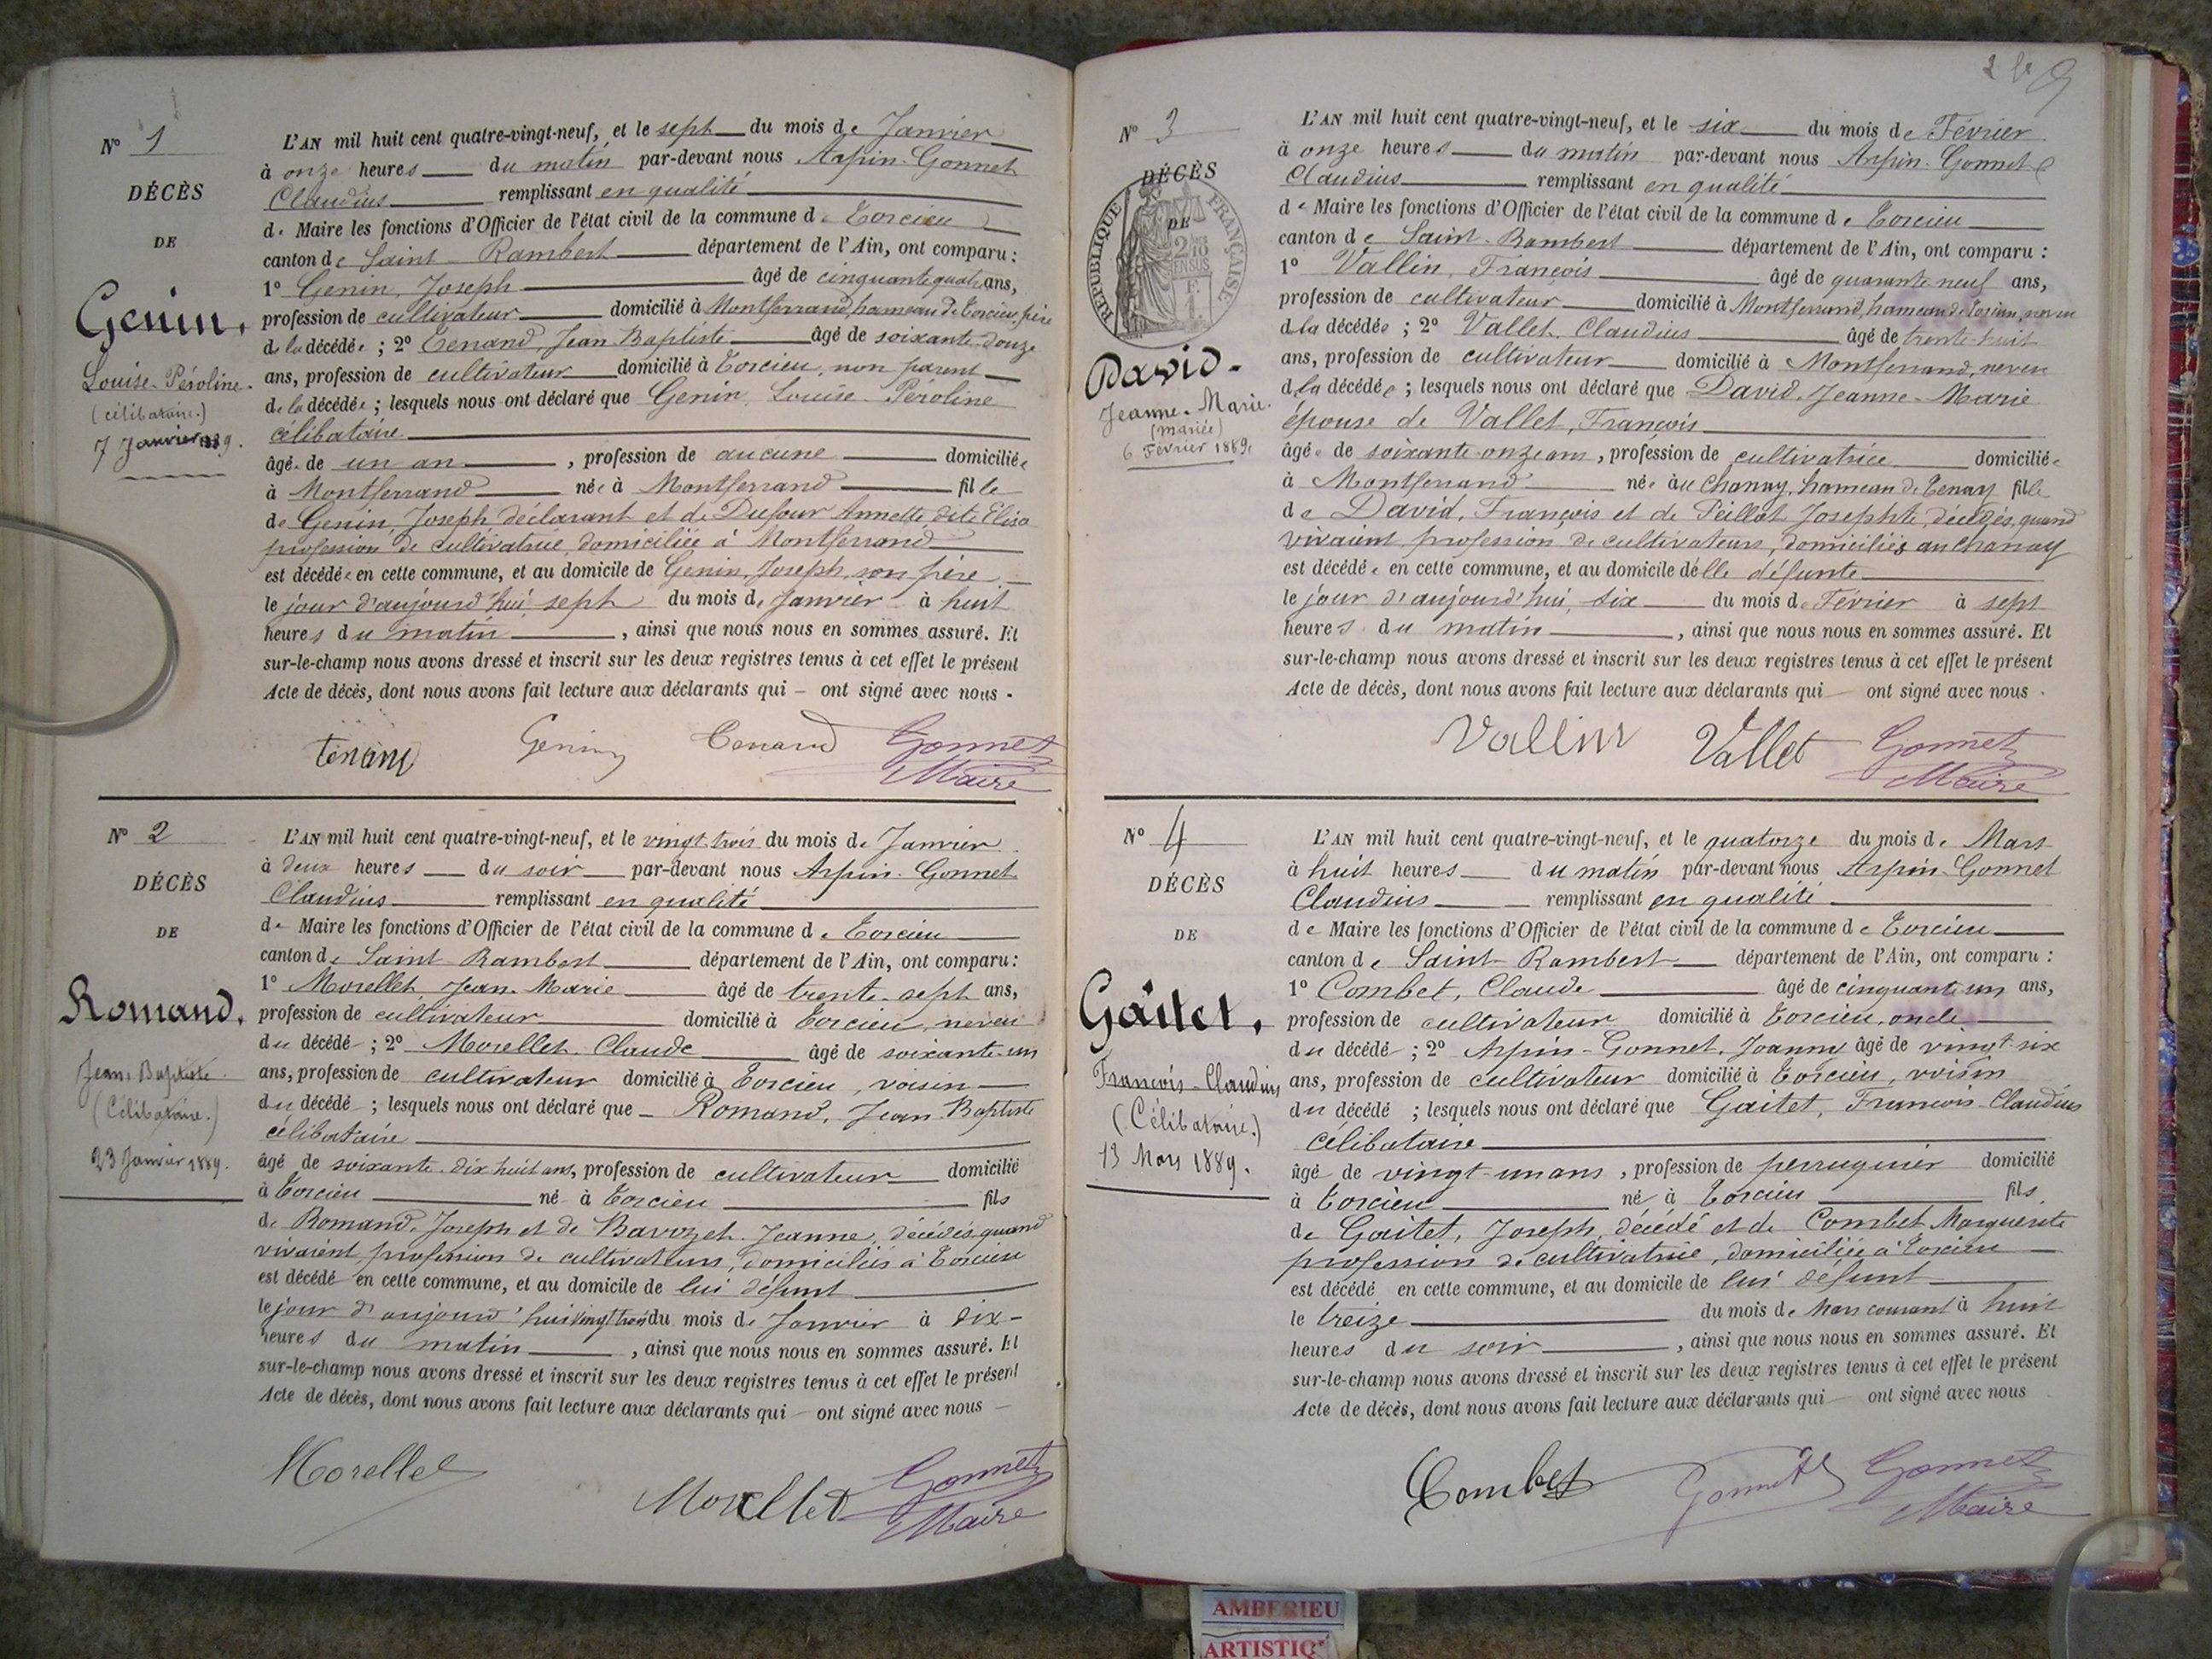 N° 1
DÉCÈS
DE
Genin,
Louise-Péroline.
(célibataire.)
7 Janvier 1889.
L'AN mil huit cent quatre-vingt-neuf, et le sept du mois de Janvier
à onze heures du matin par-devant nous Arpin-Gonnet
Claudius remplissant en qualité
de Maire les fonctions d'Officier de l'état civil de la commune de Torcieu
canton de Saint-Rambert département de l'Ain, ont comparu :
1° Genin, Joseph âgé de cinquante quatre ans,
profession de cultivateur domicilié à Montferrand, hameau de Torcieu, père
de la décédée ; 2° Tenand, Jean Baptiste âgé de soixante-douze
ans, profession de cultivateur domicilié à Torcieu, non parent
de la décédée ; lesquels nous ont déclaré que Genin, Louise-Péroline
célibataire
âgée de un an, profession de aucune domiciliée
à Montferrand née à Montferrand fille
de Genin, Joseph déclarant et de Dufour Annette dite Elisa
profession de cultivatrice, domiciliée à Montferrand
est décédée en cette commune, et au domicile de Genin, Joseph, son père
le jour d'aujourd'hui, sept du mois de Janvier à huit
heures du matin, ainsi que nous nous en sommes assuré. Et
sur-le-champ nous avons dressé et inscrit sur les deux registres tenus à cet effet le présent
Acte de décès, dont nous avons fait lecture aux déclarants qui ont signé avec nous.
Tenand Genin Tenand Gonnet
Maire
N° 2
DÉCÈS
DE
Romand,
Jean-Baptiste
(Célibataire.)
23 Janvier 1889.
L'AN mil huit cent quatre-vingt-neuf, et le vingt-trois du mois de Janvier
à deux heures du soir par-devant nous Arpin-Gonnet
Claudius remplissant en qualité
de Maire les fonctions d'Officier de l'état civil de la commune de Torcieu
canton de Saint Rambert département de l'Ain, ont comparu :
1° Morellet, Jean-Marie âgé de trente-sept ans,
profession de cultivateur domicilié à Torcieu, neveu
du décédé ; 2° Morellet, Claude âgé de soixante-un
ans, profession de cultivateur domicilié à Torcieu, voisin
du décédé ; lesquels nous ont déclaré que Romand, Jean-Baptiste
célibataire
âgé de soixante-dix huit ans, profession de cultivateur domicilié
à Torcieu né à Torcieu fils
de Romand, Joseph et de Bavozet Jeanne, décédés, quand
vivaient profession de cultivateurs, domiciliés à Torcieu
est décédé en cette commune, et au domicile de lui défunt
le jour d'aujourd'hui vingt trois du mois de Janvier à dix
heures du matin, ainsi que nous nous en sommes assuré. Et
sur-le-champ nous avons dressé et inscrit sur les deux registres tenus à cet effet le présent
Acte de décès, dont nous avons fait lecture aux déclarants qui ont signé avec nous
Morellet Morellet Gonnet
Maire
N° 3
DÉCÈS
DE
RÉPUBLIQUE FRANÇAISE
2/10 EN SUS
F. 1
David-
Jeanne-Marie.
(mariée)
6 Février 1889.
L'AN mil huit cent quatre-vingt-neuf, et le six du mois de Février
à onze heures du matin par-devant nous Arpin-Gonnet
Claudius remplissant en qualité
de Maire les fonctions d'Officier de l'état civil de la commune de Torcieu
canton de Saint-Rambert département de l'Ain, ont comparu :
1° Vallin, François âgé de quarante neuf ans,
profession de cultivateur domicilié à Montferrand, hameau de Torcieu, neveu
de la décédée ; 2° Vallet, Claudius âgé de trente-huit
ans, profession de cultivateur domicilié à Montferrand, neveu
de la décédée ; lesquels nous ont déclaré que David, Jeanne-Marie
épouse de Vallet, François
âgée de soixante-onze ans, profession de cultivatrice domiciliée
à Montferrand née au Chanay, hameau de Tenay fille
de David, François et de Peillot Josephte, décédés, quand
vivaient profession de cultivateurs, domiciliés au Chanay
est décédée en cette commune, et au domicile d'elle défunte
le jour d'aujourd'hui, six du mois de Février à sept
heures du matin, ainsi que nous nous en sommes assuré. Et
sur-le-champ nous avons dressé et inscrit sur les deux registres tenus à cet effet le présent
Acte de décès, dont nous avons fait lecture aux déclarants qui ont signé avec nous.
Vallin Vallet Gonnet
Maire
N° 4
DÉCÈS
DE
Gaitet,
François-Claudius
(Célibataire.)
13 Mars 1889.
L'AN mil huit cent quatre-vingt-neuf, et le quatorze du mois de Mars
à huit heures du matin par-devant nous Arpin-Gonnet
Claudius remplissant en qualité
de Maire les fonctions d'Officier de l'état civil de la commune de Torcieu
canton de Saint-Rambert département de l'Ain, ont comparu :
1° Combet, Claude âgé de cinquante-un ans,
profession de cultivateur domicilié à Torcieu, oncle
du décédé ; 2° Arpin-Gonnet, Joanny âgé de vingt-six
ans, profession de cultivateur domicilié à Torcieu, voisin
du décédé ; lesquels nous ont déclaré que Gaitet, François-Claudius
célibataire
âgé de vingt-un ans, profession de perruquier domicilié
à Torcieu né à Torcieu fils
de Gaitet, Joseph, décédé et de Combet Marguerite
profession de cultivatrice, domiciliée à Torcieu
est décédé en cette commune, et au domicile de lui défunt
le treize du mois de Mars courant à huit
heures du soir, ainsi que nous nous en sommes assuré. Et
sur-le-champ nous avons dressé et inscrit sur les deux registres tenus à cet effet le présent
Acte de décès, dont nous avons fait lecture aux déclarants qui ont signé avec nous
Combet Gonnet Gonnet
Maire
AMBERIEU
ARTISTIQ